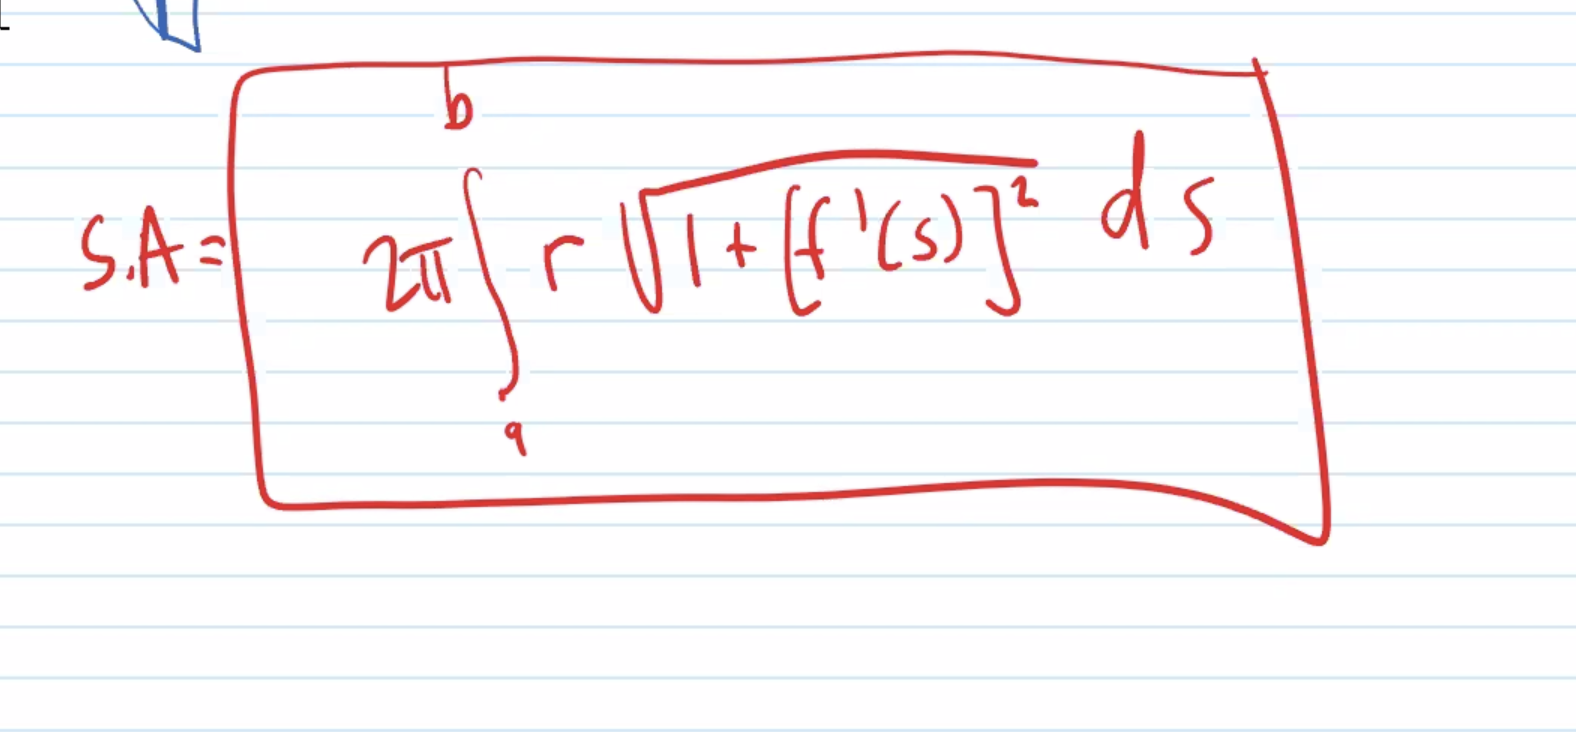 S.A = 2π ∫_a^b r √(1 + [f'(s)]²) ds